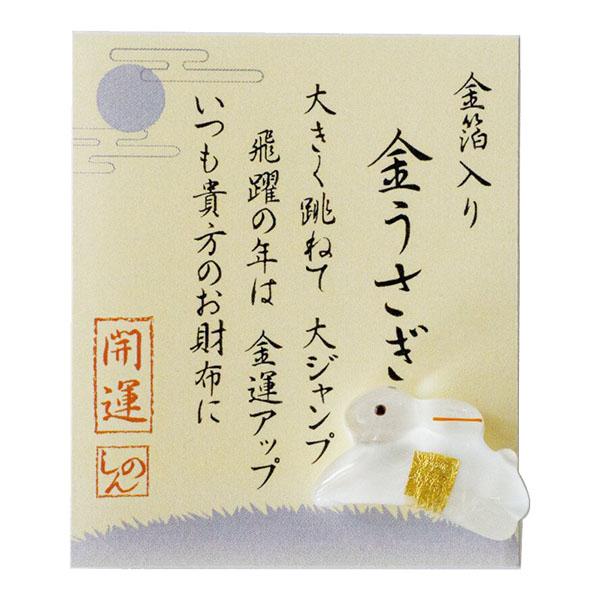 金箔入り
金うさぎ
大きく跳ねて 大ジャンプ
飛躍の年は 金運アップ
いつも貴方のお財布に
開運
しんの